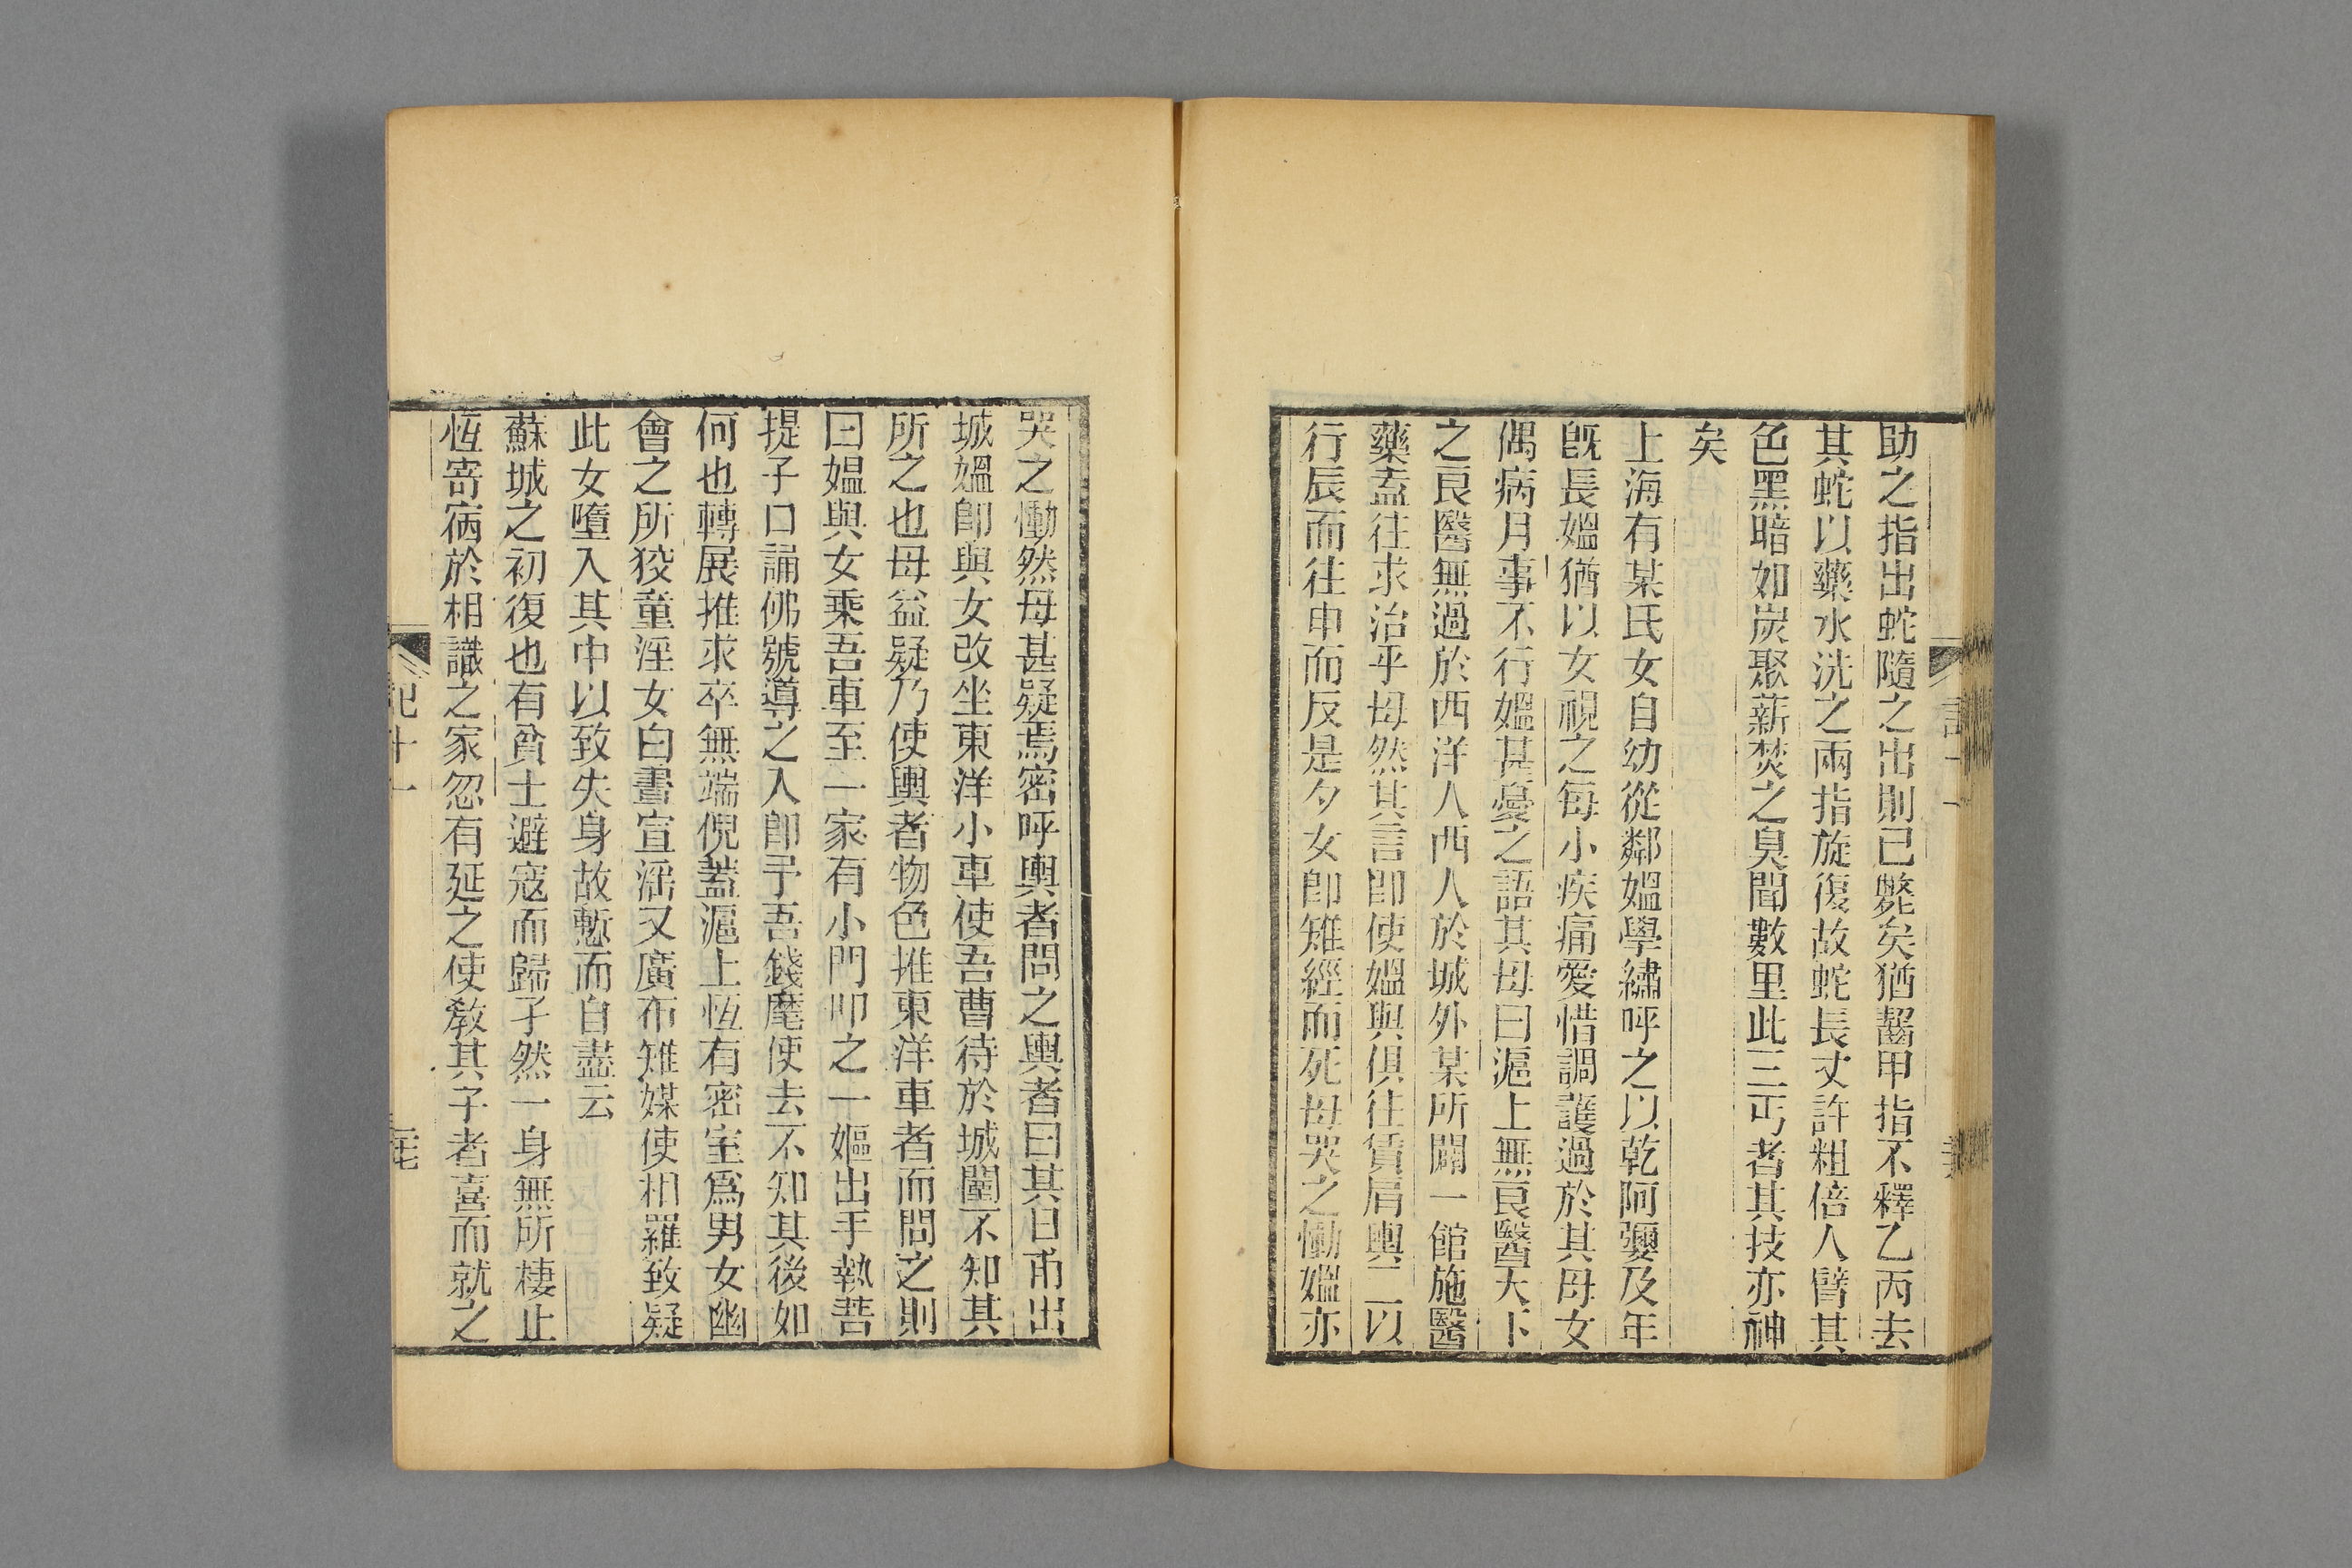 助之指出蛇隨之出則已斃矣猶齧甲指不釋乙丙去
其蛇以藥水洗之兩指旋復故蛇長丈許粗倍人臂其
色黑暗如炭聚薪焚之臭聞數里此三丐者其技亦神
矣
上海有某氏女自幼從鄰媼學繡呼之以乾阿嬭及年
旣長媼猶以女視之每小疾痛愛惜調護過於其母女
偶病月事不行媼甚憂之語其母曰滬上無良醫天下
之良醫無過於西洋人西人於城外某所開一館施醫
藥盍往求治乎母然其言卽使媼與俱往賃肩輿二以
行辰而往申而反是夕女卽雉經而死母哭之慟媼亦
哭之慟然母甚疑焉密呼輿者問之輿者曰其日甫出
城媼卽與女改坐東洋小車使吾曹待於城闉不知其
所之也母益疑乃使輿者物色推東洋車者而問之則
曰媼與女乘吾車至一家有小門叩之一嫗出手執菩
提子口誦佛號導之入卽予吾錢麾使去不知其後如
何也轉展推求卒無端倪蓋滬上恆有密室爲男女幽
會之所狡童淫女白晝宣淫又廣布雉媒使相羅致疑
此女墮入其中以致失身故慙而自盡云
蘇城之初復也有貧士避寇而歸孑然一身無所棲止
恆寄宿於相識之家忽有延之使敎其子者喜而就之
記十一